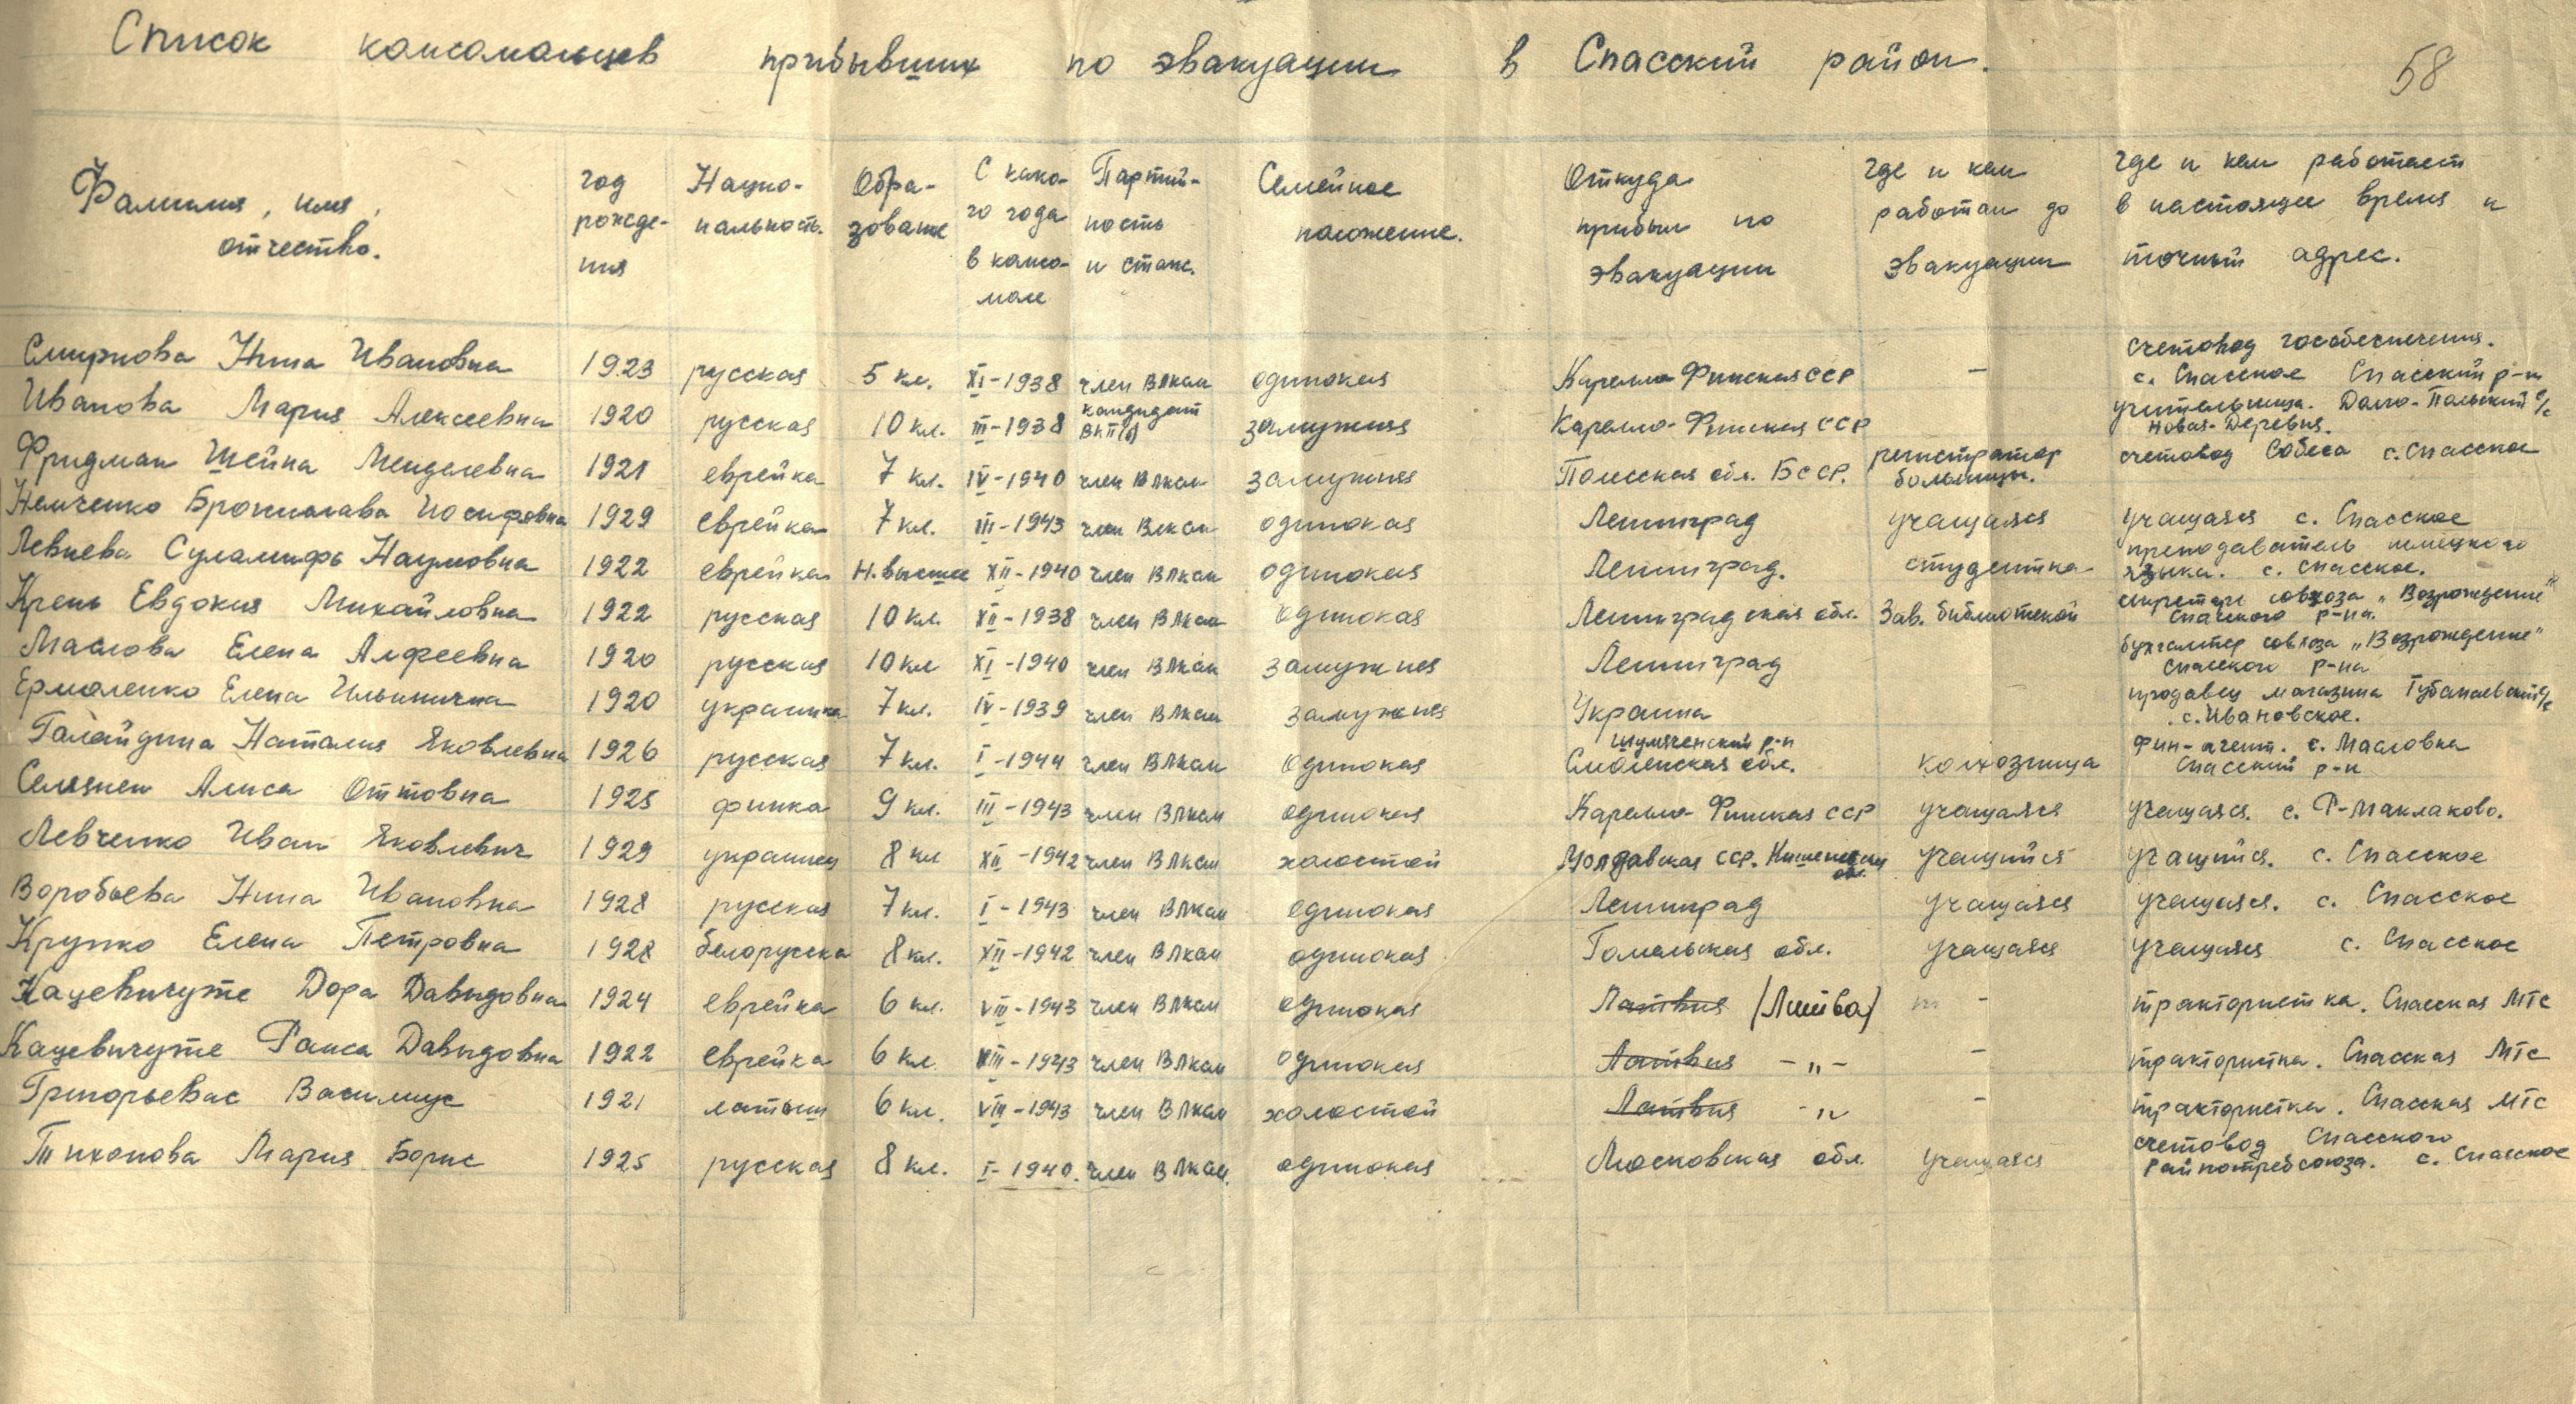 Список комсомольцев прибывших по эвакуации в Спасский район.
58
Фамилия, имя, отчество.
год рожде- ния
Нацио- нальность.
Обра- зование
С како- го года в комсо- моле
Партий- ность и стаж.
Семейное положение.
Откуда прибыл по эвакуации
где и кем работал до эвакуации
где и кем работает в настоящее время и точный адрес.
Смирнова Нина Ивановна 1923 русская 5 кл. XI-1938 член ВЛКСМ одинокая Карелло-Финская ССР - счетовод гособеспечения. с. Спасское Спасский р-н
Иванова Мария Алексеевна 1920 русская 10 кл. III-1938 кандидат ВКП(б) замужняя Карелло-Финская ССР учительница. Далю-Польский с/с Новая-Деревня.
Фридман Шейна Менделевна 1921 еврейка 7 кл. IV-1940 член ВЛКСМ замужняя Полесская обл. БССР. регистратор больницы. счетовод Собеса с. Спасское
Немченко Бронислава Иосифовна 1929 еврейка 7 кл. III-1943 член ВЛКСМ одинокая Ленинград учащаяся учащаяся с. Спасское
Левиева Суламифь Наумовна 1922 еврейка Н. высшее XII-1940 член ВЛКСМ одинокая Ленинград. студентка преподаватель немецкого языка. с. Спасское.
Крень Евдокия Михайловна 1922 русская 10 кл. XII-1938 член ВЛКСМ одинокая Ленинградская обл. Зав. библиотекой секретарь совхоза „Возрождение" Спасского р-на.
Маслова Елена Алфеевна 1920 русская 10 кл XI-1940 член ВЛКСМ замужняя Ленинград бухгалтер совхоза „Возрождение" Спасского р-на
Ермоленко Елена Ильинична 1920 украинка 7 кл. IV-1939 член ВЛКСМ замужняя Украина продавец магазина Тубанаевский с/с с. Ивановское.
Галайдина Наталия Яковлевна 1926 русская 7 кл. I-1944 член ВЛКСМ одинокая Шумяченский р-н Смоленская обл. колхозница Фин-агент. с. Масловка Спасский р-н
Селянен Алиса Оттовна 1925 финка 9 кл. III-1943 член ВЛКСМ одинокая Карелло-Финская ССР учащаяся учащаяся. с. Р-Маклаково.
Левченко Иван Яковлевич 1929 украинец 8 кл XII-1942 член ВЛКСМ холостой Молдавская ССР. обл. учащийся учащийся. с. Спасское
Воробьева Нина Ивановна 1928 русская 7 кл. I-1943 член ВЛКСМ одинокая Ленинград учащаяся учащаяся. с. Спасское
Крупко Елена Петровна 1928 белорусска 8 кл. XII-1942 член ВЛКСМ одинокая Гомельская обл. учащаяся учащаяся с. Спасское
Кацевичуте Дора Давыдовна 1924 еврейка 6 кл. VIII-1943 член ВЛКСМ одинокая Латвия (Литва) - трактористка. Спасская МТС
Кацевичуте Раиса Давыдовна 1922 еврейка 6 кл. VIII-1943 член ВЛКСМ одинокая Латвия -„- - трактористка. Спасская МТС
Григорьевас Василиус 1921 латыш 6 кл. VIII-1943 член ВЛКСМ холостой Латвия -„ - трактористка. Спасская МТС
Тихонова Мария Борис 1925 русская 8 кл. I-1940. член ВЛКСМ. одинокая Московская обл. учащаяся счетовод Спасского Райпотребсоюза. с. Спасское